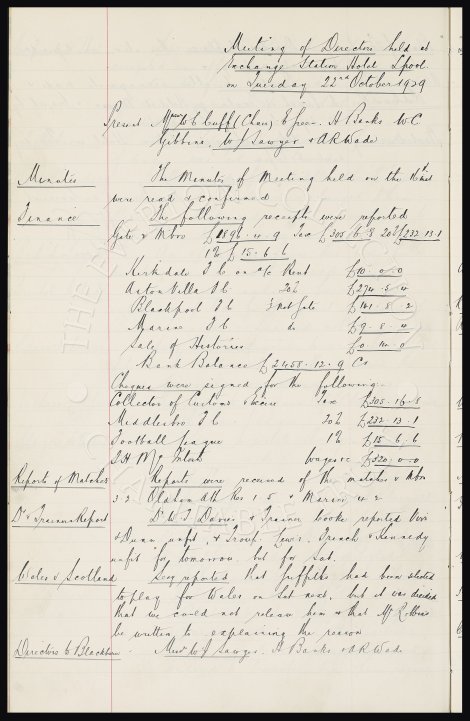 Meeting of Directors held at
Exchange Station Hotel Lpool
on Tuesday 22nd October 1929
Present Messrs W C Cuff (Chair) E Green. A Banks W.C.
Gibbins, W J Sawyer & A R Wade
Minutes The Minutes of Meeting held on the 16th inst
were read & confirmed
Finance The following receipts were reported
Gate v Mbro £1596.4.9 Tax £305.6.8 20% £232.13.1
1% £15.6.6
Kirkdale F C on a/c Rent £10.0.0
Aston Villa F.C. 20% £274.5.4
Blackpool F C ½ Net Gate £141.8.2
Marine F.C. do £9.8.4
Sale of Histories £0.14.0
Bank Balance £2458.12.9 Cr
Cheques were signed for the following:
Collector of Customs & Excise Tax £305.16.8
Middlesbro F.C. 20% £232.13.1
Football League 1% £15.6.6
Wages &c £320.0.0
Reports of Matches Reports were received of the matches v Mbro
3.2 Oldham Ath Res 1.5 & Marine 4.2
Dr & Trainers Report Dr W J Davies & Trainer Cooke reported
& Dunn unfit, & Troup Lewis, French & Kennedy
unfit for tomorrow but for Sat.
Wales v Scotland Secy reported that Griffiths had been selected
to play for Wales on Sat next, but it was decided
that we could not release him & that Mr Robbins
be written to explaining the reason
Directors to Blackburn Messrs W J Sawyer, A Banks & A R Wade
THE EVERTON